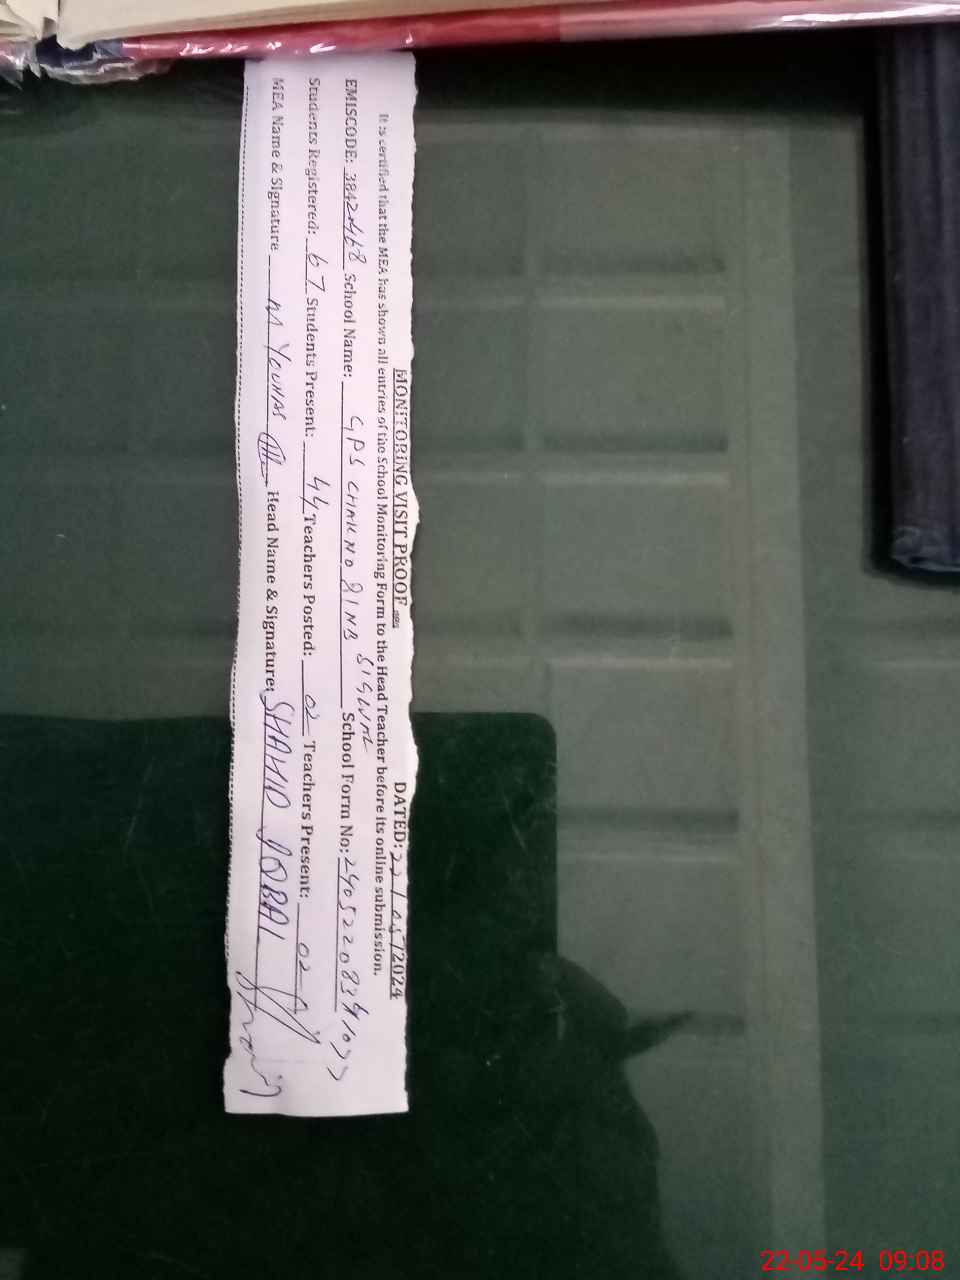 MONITORING VISIT PROOF DATED: 22/05/2024
It is certified that the MEA has shown all entries of the School Monitoring Form to the Head Teacher before its online submission.
EMISCODE: School Name: GPS CHAK NO 81 NB School Form No:
Students Registered: 67 Students Present: 44 Teachers Posted: 02 Teachers Present: 02
MEA Name & Signature YOUNAS Head Name & Signature: SHAHID IQBAL
22-05-24 09:08